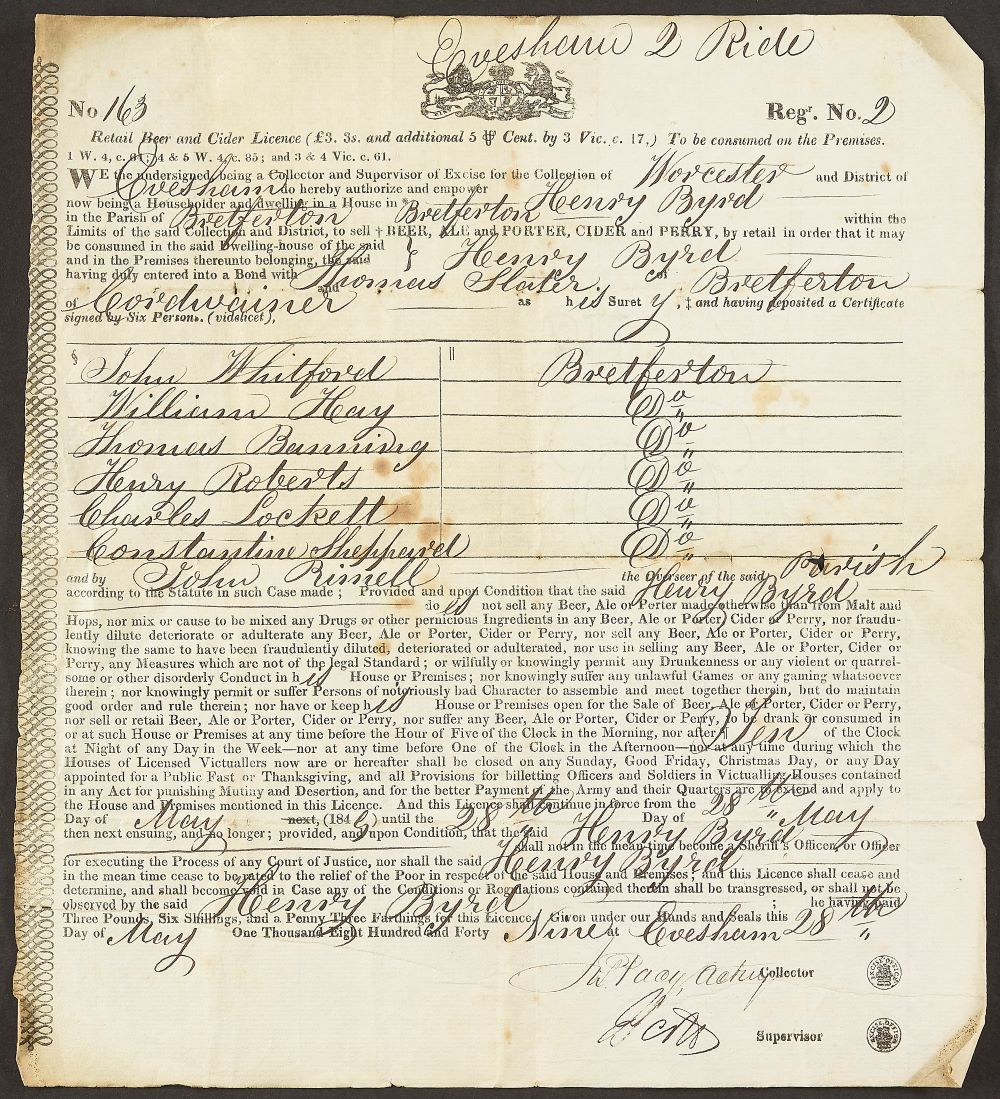 Evesham 2 Ride
No 163 Regr. No. 2
Retail Beer and Cider Licence (£3. 3s. and additional 5 ⅌ Cent. by 3 Vic. c. 17,) To be consumed on the Premises.
1 W. 4, c. 64; 4 & 5 W. 4, c. 85; and 3 & 4 Vic. c. 61.
WE the undersigned, being a Collector and Supervisor of Excise for the Collection of Worcester and District of
Evesham do hereby authorize and empower Henry Byrd
now being a Householder and dwelling in a House in * Bretferton
in the Parish of Bretferton within the
Limits of the said Collection and District, to sell † BEER, ALE and PORTER, CIDER and PERRY, by retail in order that it may
be consumed in the said Dwelling-house of the said
and in the Premises thereunto belonging, the said } Henry Byrd
having duly entered into a Bond with Thomas Slater of Bretferton
and
of Cordwainer as his Surety, ‡ and having deposited a Certificate
signed by Six Persons, (videlicet),
§ John Whitford || Bretferton
William Hay Do
Thomas Banning Do
Henry Roberts Do
Charles Lockett Do
Constantine Sheppard Do
and by John Rimell the Overseer of the said Parish
according to the Statute in such Case made; Provided and upon Condition that the said Henry Byrd
does not sell any Beer, Ale or Porter made otherwise than from Malt and
Hops, nor mix or cause to be mixed any Drugs or other pernicious Ingredients in any Beer, Ale or Porter, Cider or Perry, nor fraudu-
lently dilute deteriorate or adulterate any Beer, Ale or Porter, Cider or Perry, nor sell any Beer, Ale or Porter, Cider or Perry,
knowing the same to have been fraudulently diluted, deteriorated or adulterated, nor use in selling any Beer, Ale or Porter, Cider or
Perry, any Measures which are not of the legal Standard; or wilfully or knowingly permit any Drunkenness or any violent or quarrel-
some or other disorderly Conduct in his House or Premises; nor knowingly suffer any unlawful Games or any gaming whatsoever
therein; nor knowingly permit or suffer Persons of notoriously bad Character to assemble and meet together therein, but do maintain
good order and rule therein; nor have or keep his House or Premises open for the Sale of Beer, Ale or Porter, Cider or Perry,
nor sell or retail Beer, Ale or Porter, Cider or Perry, nor suffer any Beer, Ale or Porter, Cider or Perry, to be drank or consumed in
or at such House or Premises at any time before the Hour of Five of the Clock in the Morning, nor after ¶ Ten of the Clock
at Night of any Day in the Week—nor at any time before One of the Clock in the Afternoon—nor at any time during which the
Houses of Licensed Victuallers now are or hereafter shall be closed on any Sunday, Good Friday, Christmas Day, or any Day
appointed for a Public Fast or Thanksgiving, and all Provisions for billetting Officers and Soldiers in Victualling Houses contained
in any Act for punishing Mutiny and Desertion, and for the better Payment of the Army and their Quarters are to extend and apply to
the House and Premises mentioned in this Licence. And this Licence shall continue in force from the 28th
Day of May next, (1849) until the 28th Day of May
then next ensuing, and no longer; provided, and upon Condition, that the said Henry Byrd
shall not in the mean time become a Sheriff's Officer, or Officer
for executing the Process of any Court of Justice, nor shall the said Henry Byrd
in the mean time cease to be rated to the relief of the Poor in respect of the said House and Premises; and this Licence shall cease and
determine, and shall become void in Case any of the Conditions or Regulations contained therein shall be transgressed, or shall not be
observed by the said Henry Byrd ; he having paid
Three Pounds, Six Shillings, and a Penny Three Farthings for this Licence. Given under our Hands and Seals this 28th
Day of May One Thousand Eight Hundred and Forty Nine at Evesham
Acting Collector
EXCISE OFFICE
Supervisor
EXCISE OFFICE